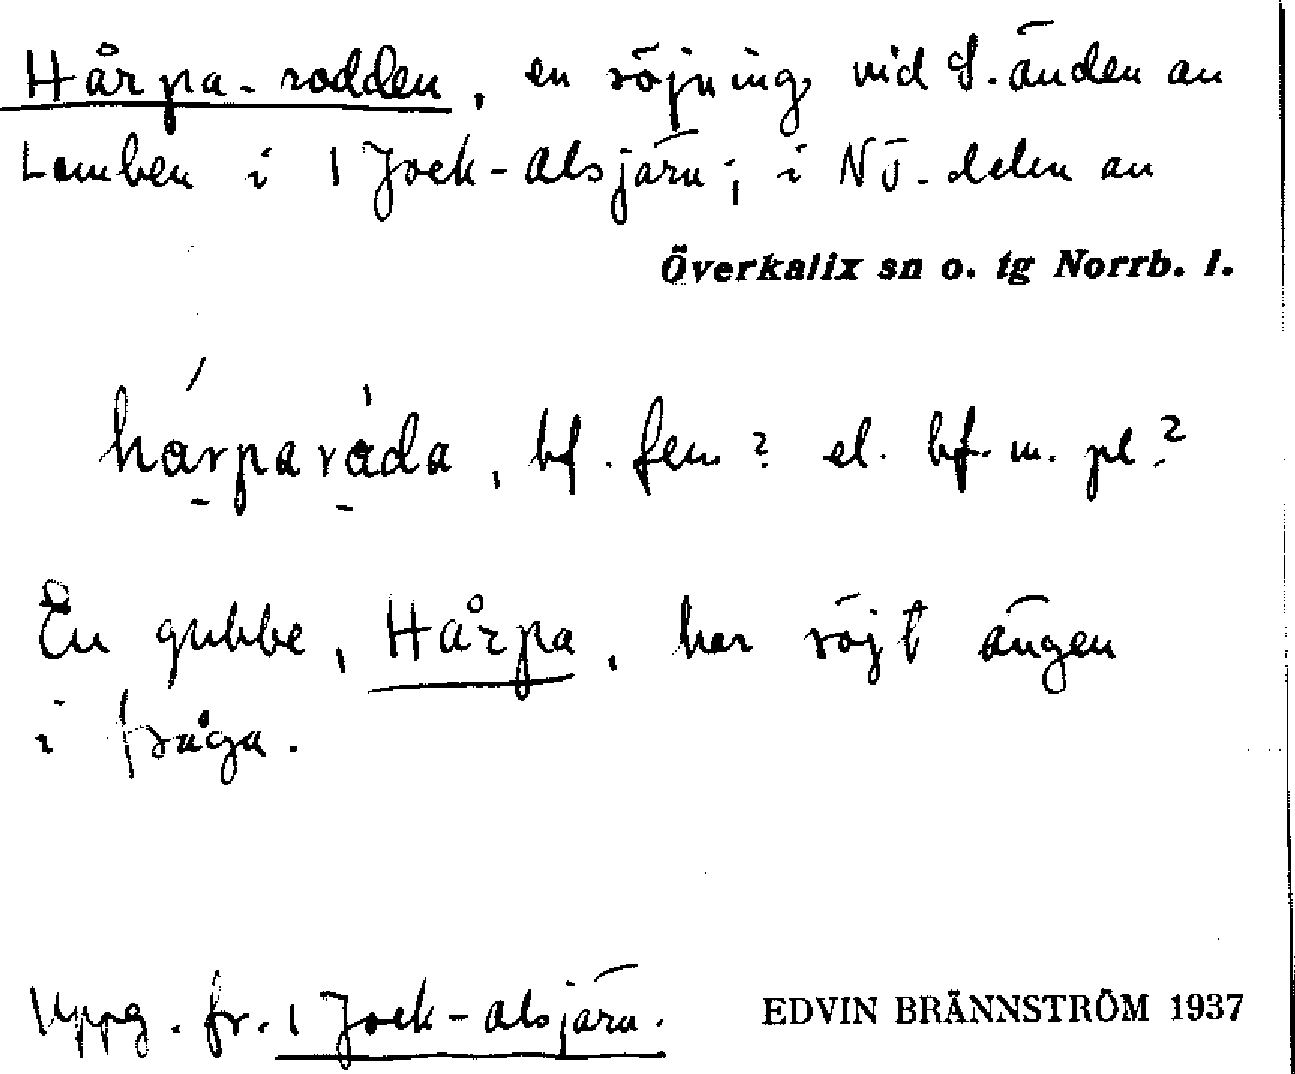 Hårpa-rodden, en röjning vid S. änden av
Lomben i 1 Jock-Alsjärv; i NÖ-delen av
Överkalix sn o. tg Norrb. l.
hárparåda, bf. fem? el. bf. m. pl.?
En gubbe, Hårpa, har röjt ängen
i fråga.
Uppg. fr. 1 Jock-Alsjärv.
EDVIN BRÄNNSTRÖM 1937